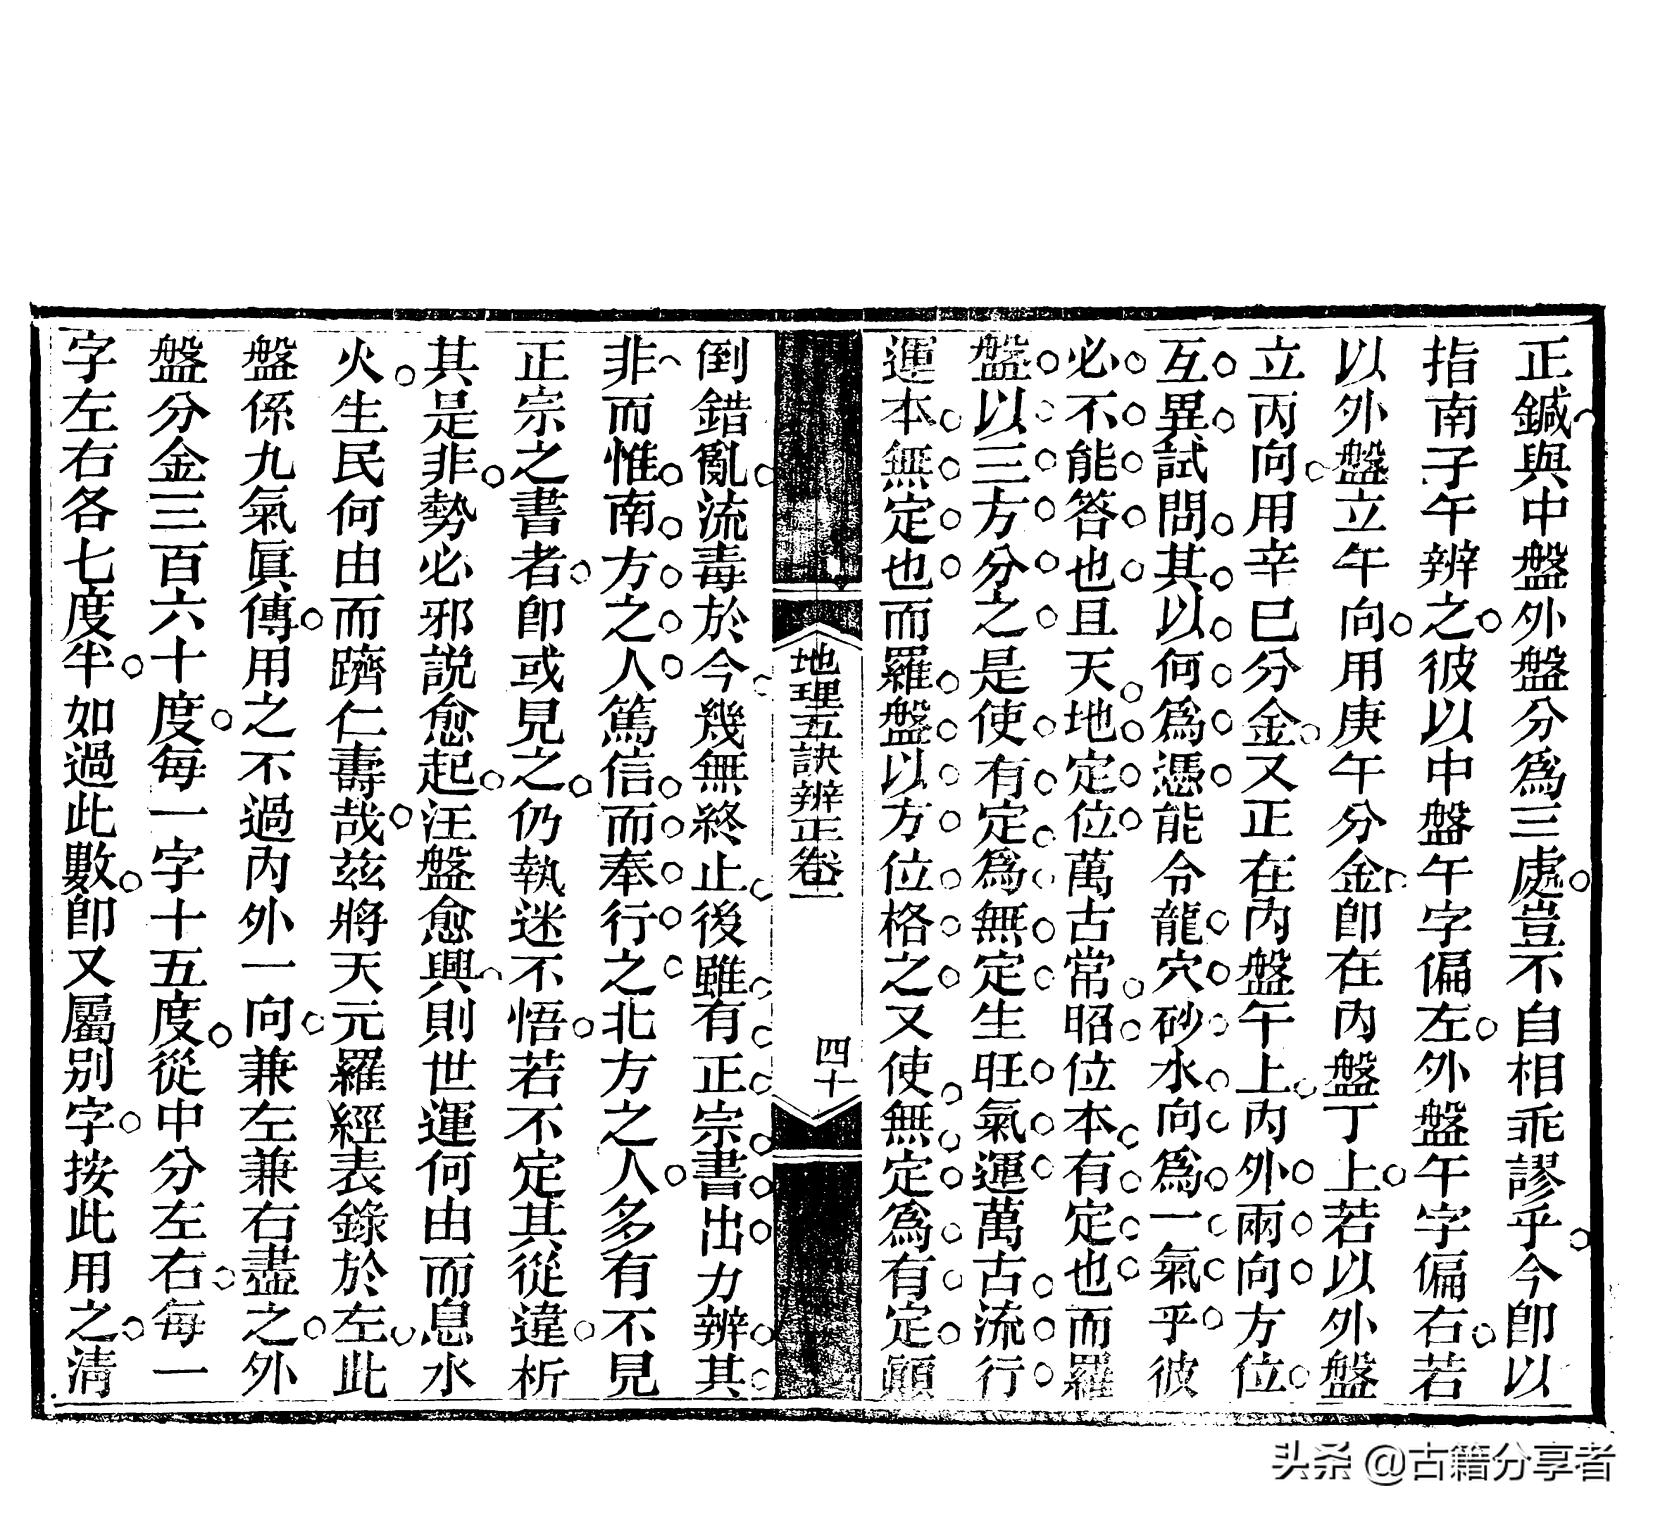 正鍼與中盤外盤分爲三處豈不自相乖謬乎今卽以
指南子午辨之彼以中盤午字偏左外盤午字偏右若
以外盤立午向用庚午分金卽在內盤丁上若以外盤
立丙向用辛巳分金又正在內盤午上內外兩向方位
互異試問其以何爲憑能令龍穴砂水向爲一氣乎彼
必不能答也且天地定位萬古常昭位本有定也而羅
盤以三方分之是使有定爲無定生旺氣運萬古流行
運本無定也而羅盤以方位格之又使無定爲有定顚
地理五訣辨正卷一 四十
倒錯亂流毒於今幾無終止後雖有正宗書出力辨其
非而惟南方之人篤信而奉行之北方之人多有不見
正宗之書者卽或見之仍執迷不悟若不定其從違析
其是非勢必邪說愈起汪盤愈興則世運何由而息水
火生民何由而躋仁壽哉茲將天元羅經表錄於左此
盤係九氣眞傳用之不過內外一向兼左兼右盡之外
盤分金三百六十度每一字十五度從中分左右每一
字左右各七度半如過此數卽又屬別字按此用之淸
头条 @古籍分享者